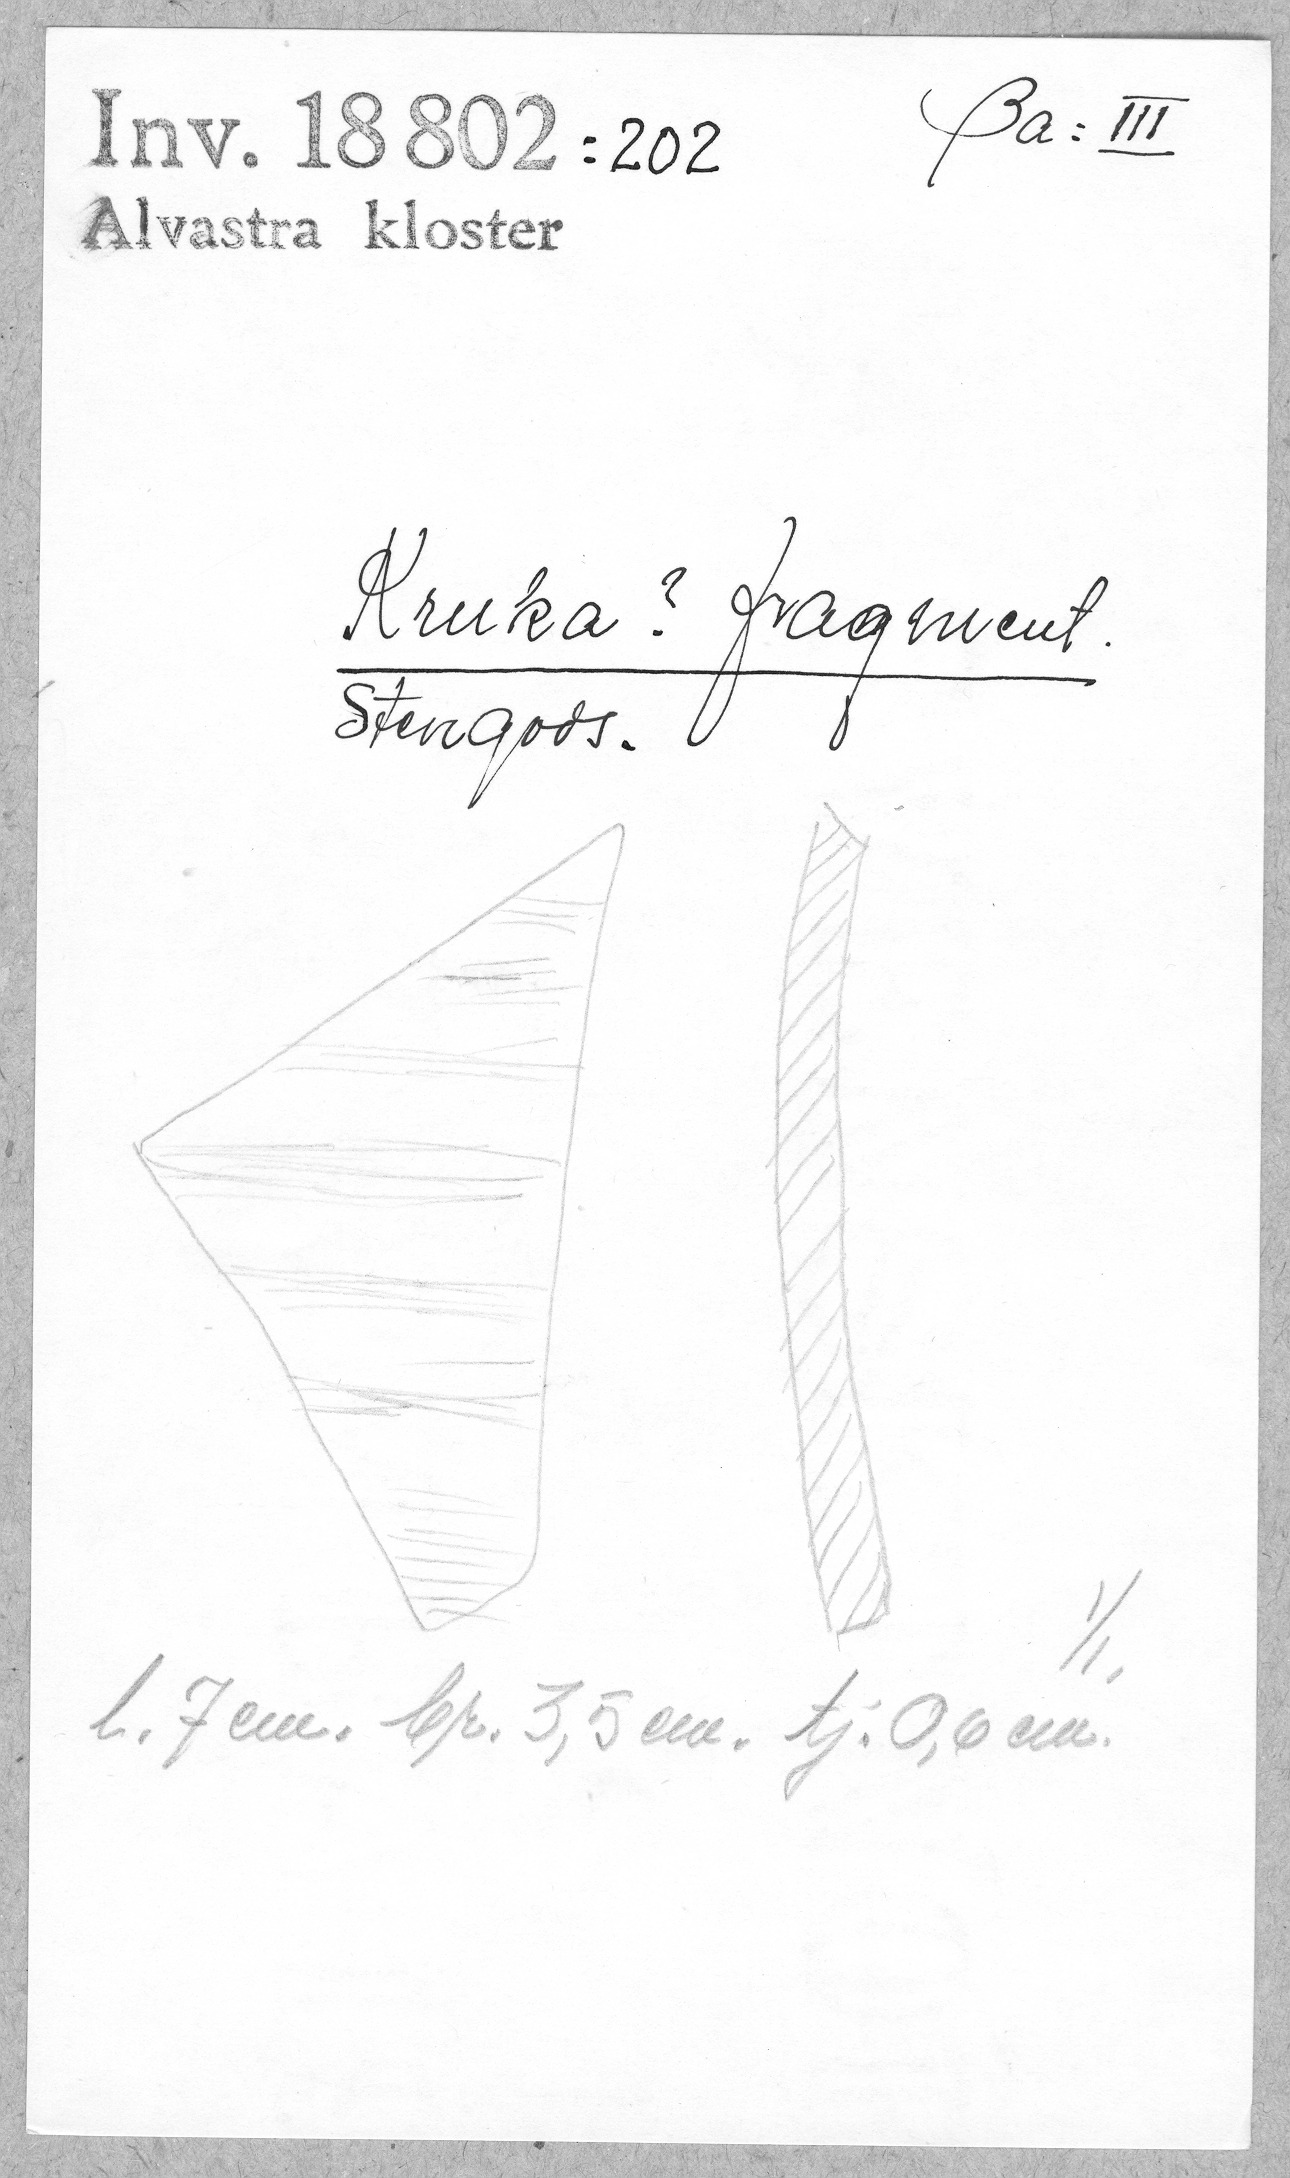 Inv. 18 802 :202
βa: III
Alvastra kloster
Kruka? fragment.
Stengods.
1/1.
l. 7 cm. br. 3,5 cm. tj. 0,6 cm.